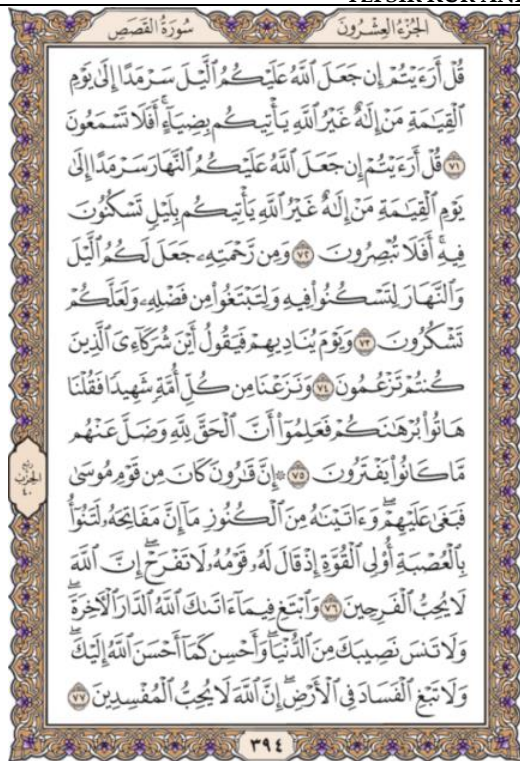 TEFSIR KUR'AN
الجُزْءُ العِشْرُونَ
سُورَةُ القَصَصِ
قُلْ أَرَءَيْتُمْ إِن جَعَلَ ٱللَّهُ عَلَيْكُمُ ٱلَّيْلَ سَرْمَدًا إِلَىٰ يَوْمِ
ٱلْقِيَٰمَةِ مَنْ إِلَٰهٌ غَيْرُ ٱللَّهِ يَأْتِيكُم بِضِيَآءٍ ۖ أَفَلَا تَسْمَعُونَ
٧١ قُلْ أَرَءَيْتُمْ إِن جَعَلَ ٱللَّهُ عَلَيْكُمُ ٱلنَّهَارَ سَرْمَدًا إِلَىٰ
يَوْمِ ٱلْقِيَٰمَةِ مَنْ إِلَٰهٌ غَيْرُ ٱللَّهِ يَأْتِيكُم بِلَيْلٍ تَسْكُنُونَ
فِيهِ ۖ أَفَلَا تُبْصِرُونَ ٧٢ وَمِن رَّحْمَتِهِۦ جَعَلَ لَكُمُ ٱلَّيْلَ
وَٱلنَّهَارَ لِتَسْكُنُوا۟ فِيهِ وَلِتَبْتَغُوا۟ مِن فَضْلِهِۦ وَلَعَلَّكُمْ
تَشْكُرُونَ ٧٣ وَيَوْمَ يُنَادِيهِمْ فَيَقُولُ أَيْنَ شُرَكَآءِىَ ٱلَّذِينَ
كُنتُمْ تَزْعُمُونَ ٧٤ وَنَزَعْنَا مِن كُلِّ أُمَّةٍ شَهِيدًا فَقُلْنَا
هَاتُوا۟ بُرْهَٰنَكُمْ فَعَلِمُوٓا۟ أَنَّ ٱلْحَقَّ لِلَّهِ وَضَلَّ عَنْهُم
مَّا كَانُوا۟ يَفْتَرُونَ ٧٥ ۞ إِنَّ قَٰرُونَ كَانَ مِن قَوْمِ مُوسَىٰ
فَبَغَىٰ عَلَيْهِمْ ۖ وَءَاتَيْنَٰهُ مِنَ ٱلْكُنُوزِ مَآ إِنَّ مَفَاتِحَهُۥ لَتَنُوٓأُ
بِٱلْعُصْبَةِ أُو۟لِى ٱلْقُوَّةِ إِذْ قَالَ لَهُۥ قَوْمُهُۥ لَا تَفْرَحْ ۖ إِنَّ ٱللَّهَ
لَا يُحِبُّ ٱلْفَرِحِينَ ٧٦ وَٱبْتَغِ فِيمَآ ءَاتَىٰكَ ٱللَّهُ ٱلدَّارَ ٱلْءَاخِرَةَ ۖ
وَلَا تَنسَ نَصِيبَكَ مِنَ ٱلدُّنْيَا ۖ وَأَحْسِن كَمَآ أَحْسَنَ ٱللَّهُ إِلَيْكَ ۖ
وَلَا تَبْغِ ٱلْفَسَادَ فِى ٱلْأَرْضِ ۖ إِنَّ ٱللَّهَ لَا يُحِبُّ ٱلْمُفْسِدِينَ ٧٧
ربع
الحزب
٤٠
٣٩٤